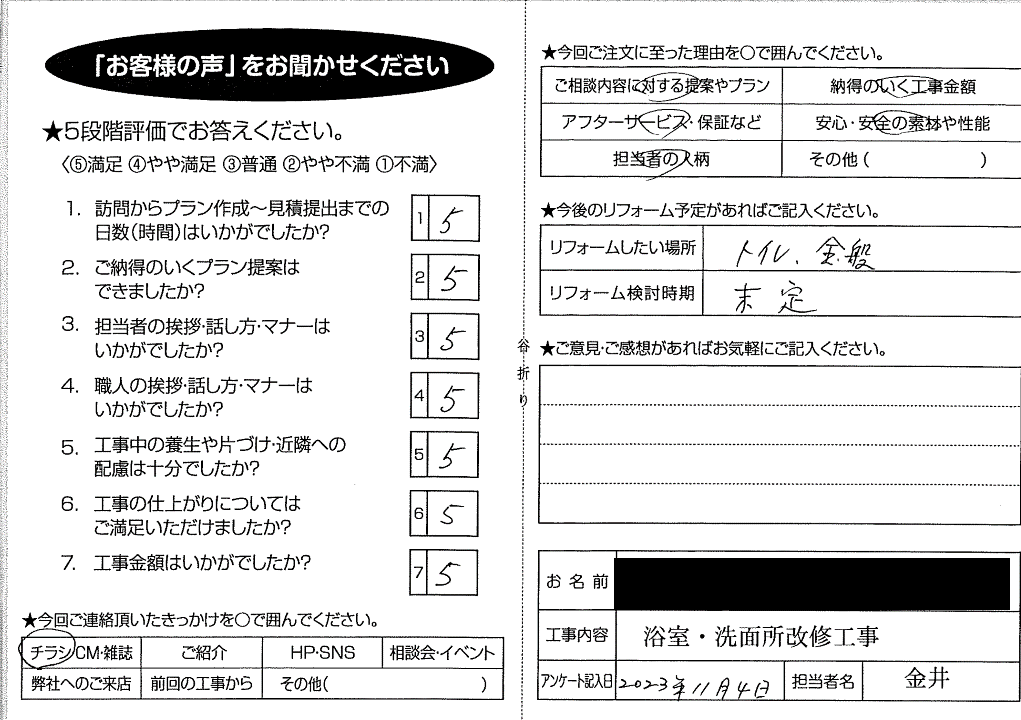 「お客様の声」をお聞かせください
★5段階評価でお答えください。
〈⑤満足 ④やや満足 ③普通 ②やや不満 ①不満〉
1. 訪問からプラン作成～見積提出までの
日数(時間)はいかがでしたか?
1 5
2. ご納得のいくプラン提案は
できましたか?
2 5
3. 担当者の挨拶・話し方・マナーは
いかがでしたか?
3 5
4. 職人の挨拶・話し方・マナーは
いかがでしたか?
4 5
5. 工事中の養生や片づけ・近隣への
配慮は十分でしたか?
5 5
6. 工事の仕上がりについては
ご満足いただけましたか?
6 5
7. 工事金額はいかがでしたか?
7 5
★今回ご連絡頂いたきっかけを○で囲んでください。
チラシ CM・雑誌 ご紹介 HP・SNS 相談会・イベント
弊社へのご来店 前回の工事から その他( )
谷折り
★今回ご注文に至った理由を○で囲んでください。
ご相談内容に対する提案やプラン 納得のいく工事金額
アフターサービス・保証など 安心・安全の素材や性能
担当者の人柄 その他( )
★今後のリフォーム予定があればご記入ください。
リフォームしたい場所 トイレ、全般
リフォーム検討時期 未定
★ご意見・ご感想があればお気軽にご記入ください。
お名前
工事内容 浴室・洗面所改修工事
アンケート記入日 2023年11月4日 担当者名 金井